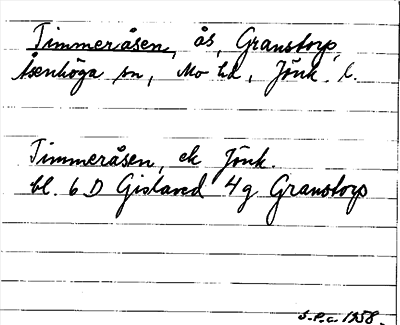 Timmeråsen, ås, Granstorp,
Åsenhöga sn, Mo hd, Jönk. l.
Timmeråsen, ek Jönk.
bl. 6 D Gislaved 4g Granstorp
S.P.c. 1958.